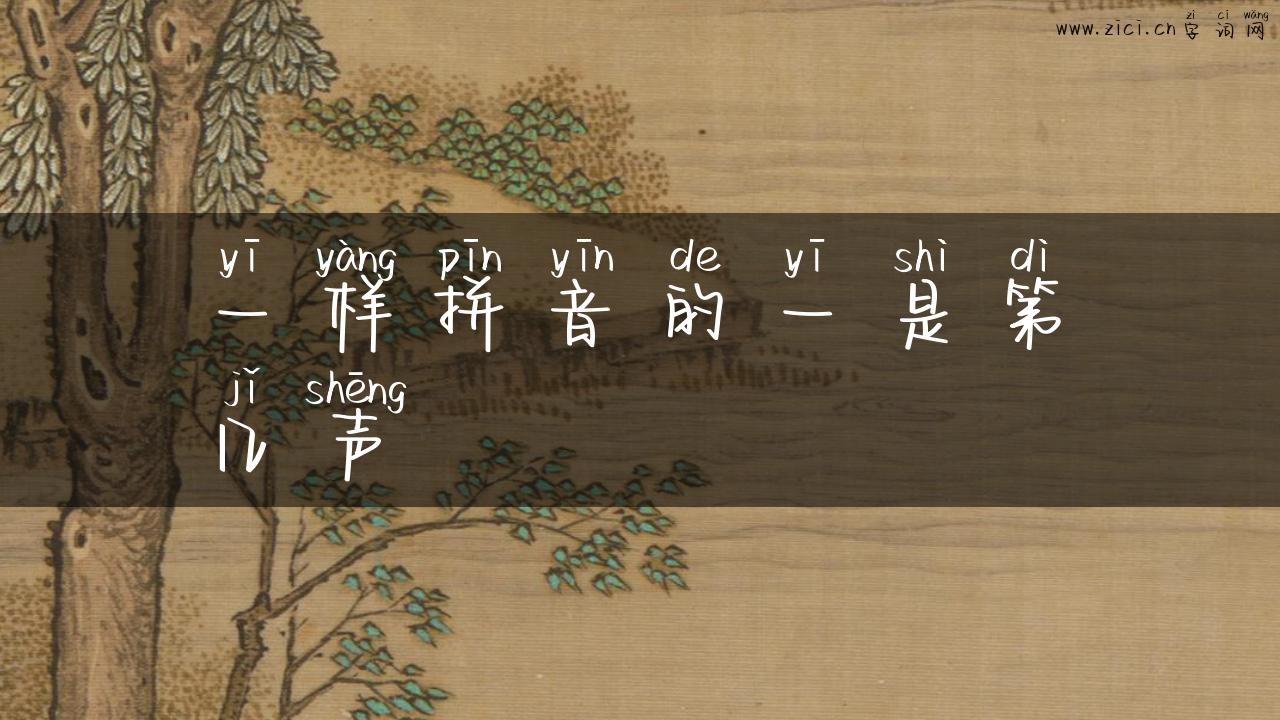 zì cí wǎng
www.zici.cn 字词网
yī yàng pīn yīn de yī shì dì
一样拼音的一是第
jǐ shēng
几声